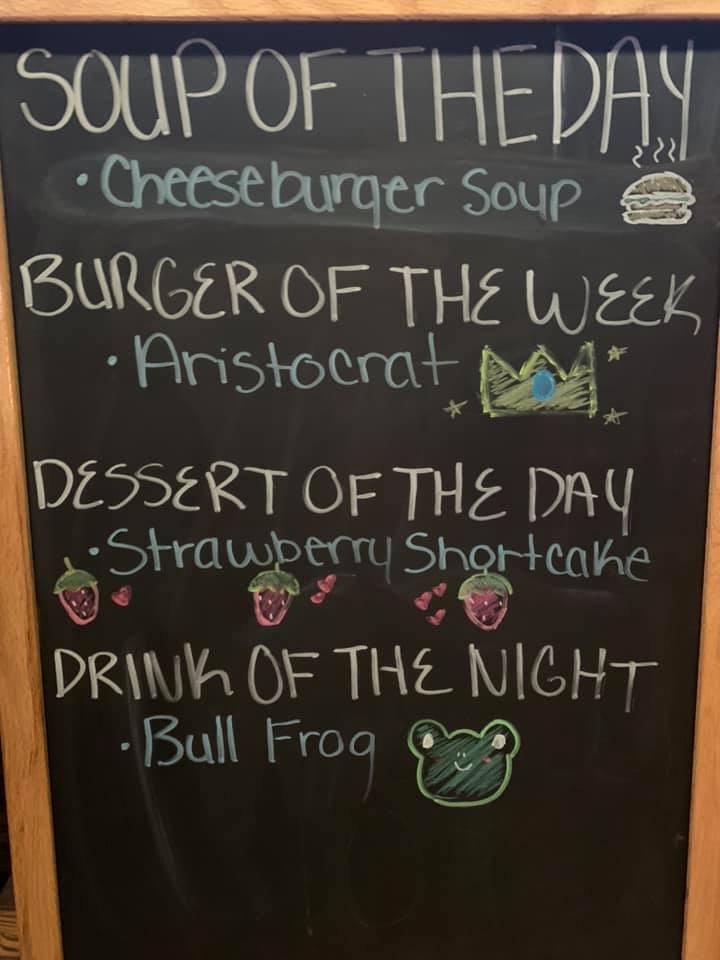 SOUP OF THE DAY
• Cheeseburger Soup
BURGER OF THE WEEK
• Aristocrat
DESSERT OF THE DAY
• Strawberry Shortcake
DRINK OF THE NIGHT
• Bull Frog